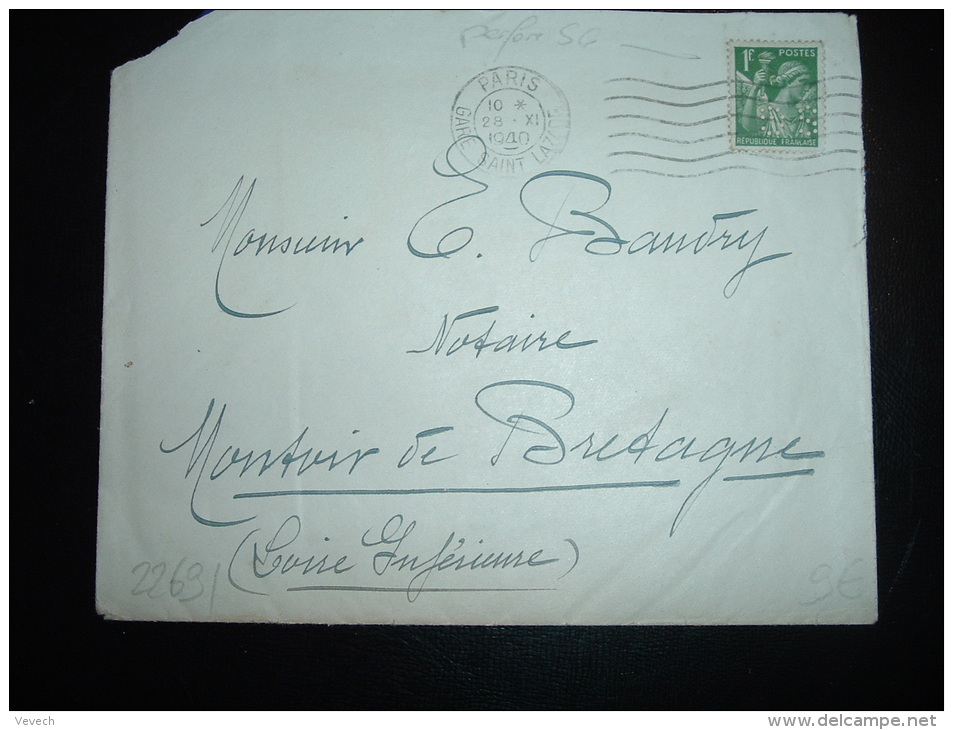 perforé SG
1F. POSTES
RÉPUBLIQUE FRANÇAISE
PARIS
10 *
28 · XI
1940
GARE SAINT LAZARE
Monsieur E. Baudry
Notaire
Montoir de Bretagne
(Loire Inférieure)
22691
9€
Vevech
http://www.delcampe.net